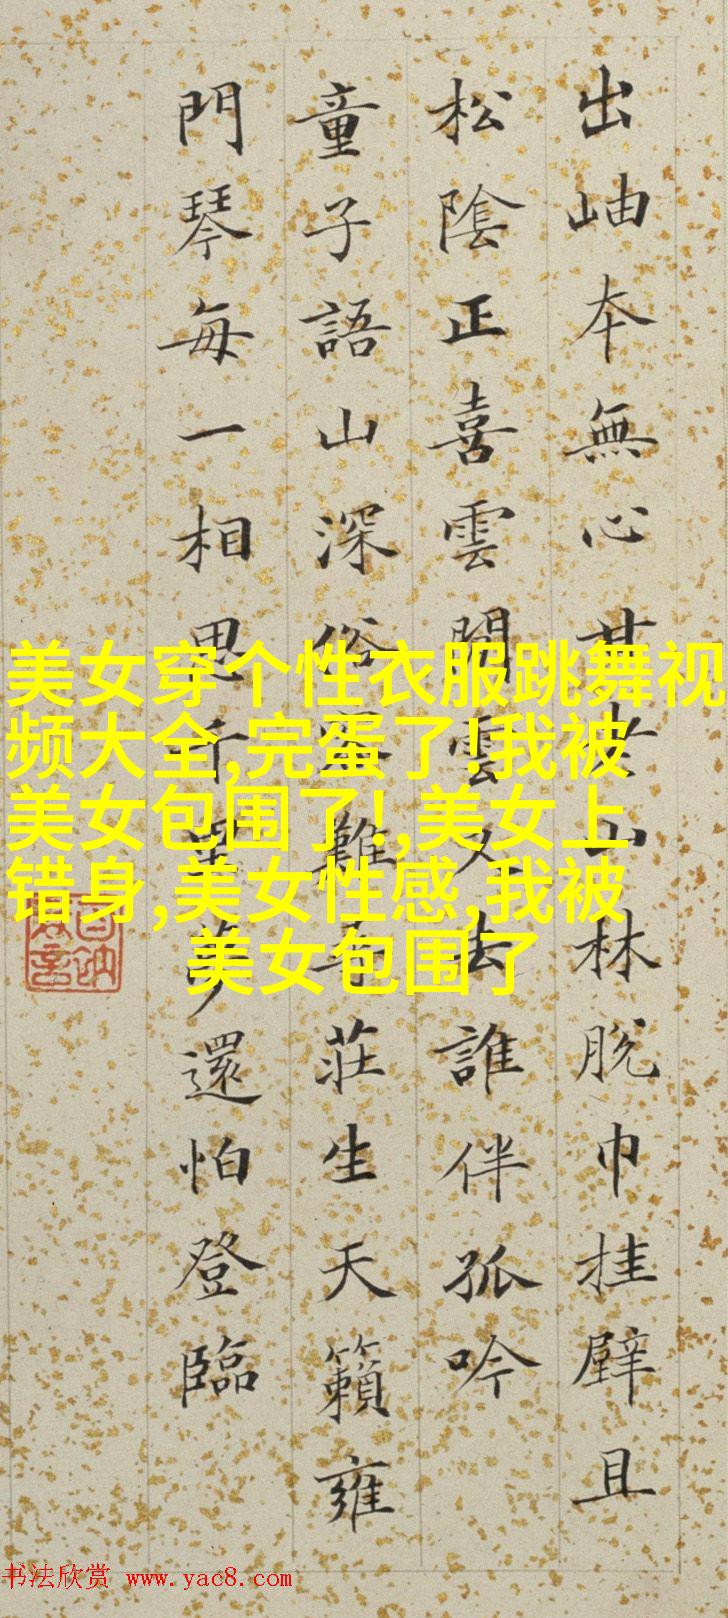 出岫本無心甚山林脫巾挂壁且
松陰正喜雲閒雲又去誰伴孤吟
童子語山深俗難莊生天籟雍
門琴每一相思千里夢還怕登臨
美女穿个性衣服跳舞视
频大全,完蛋了!我被
美女包围了!,美女上
错身,美女性感,我被
美女包围了
书法欣赏 www.yac8.com